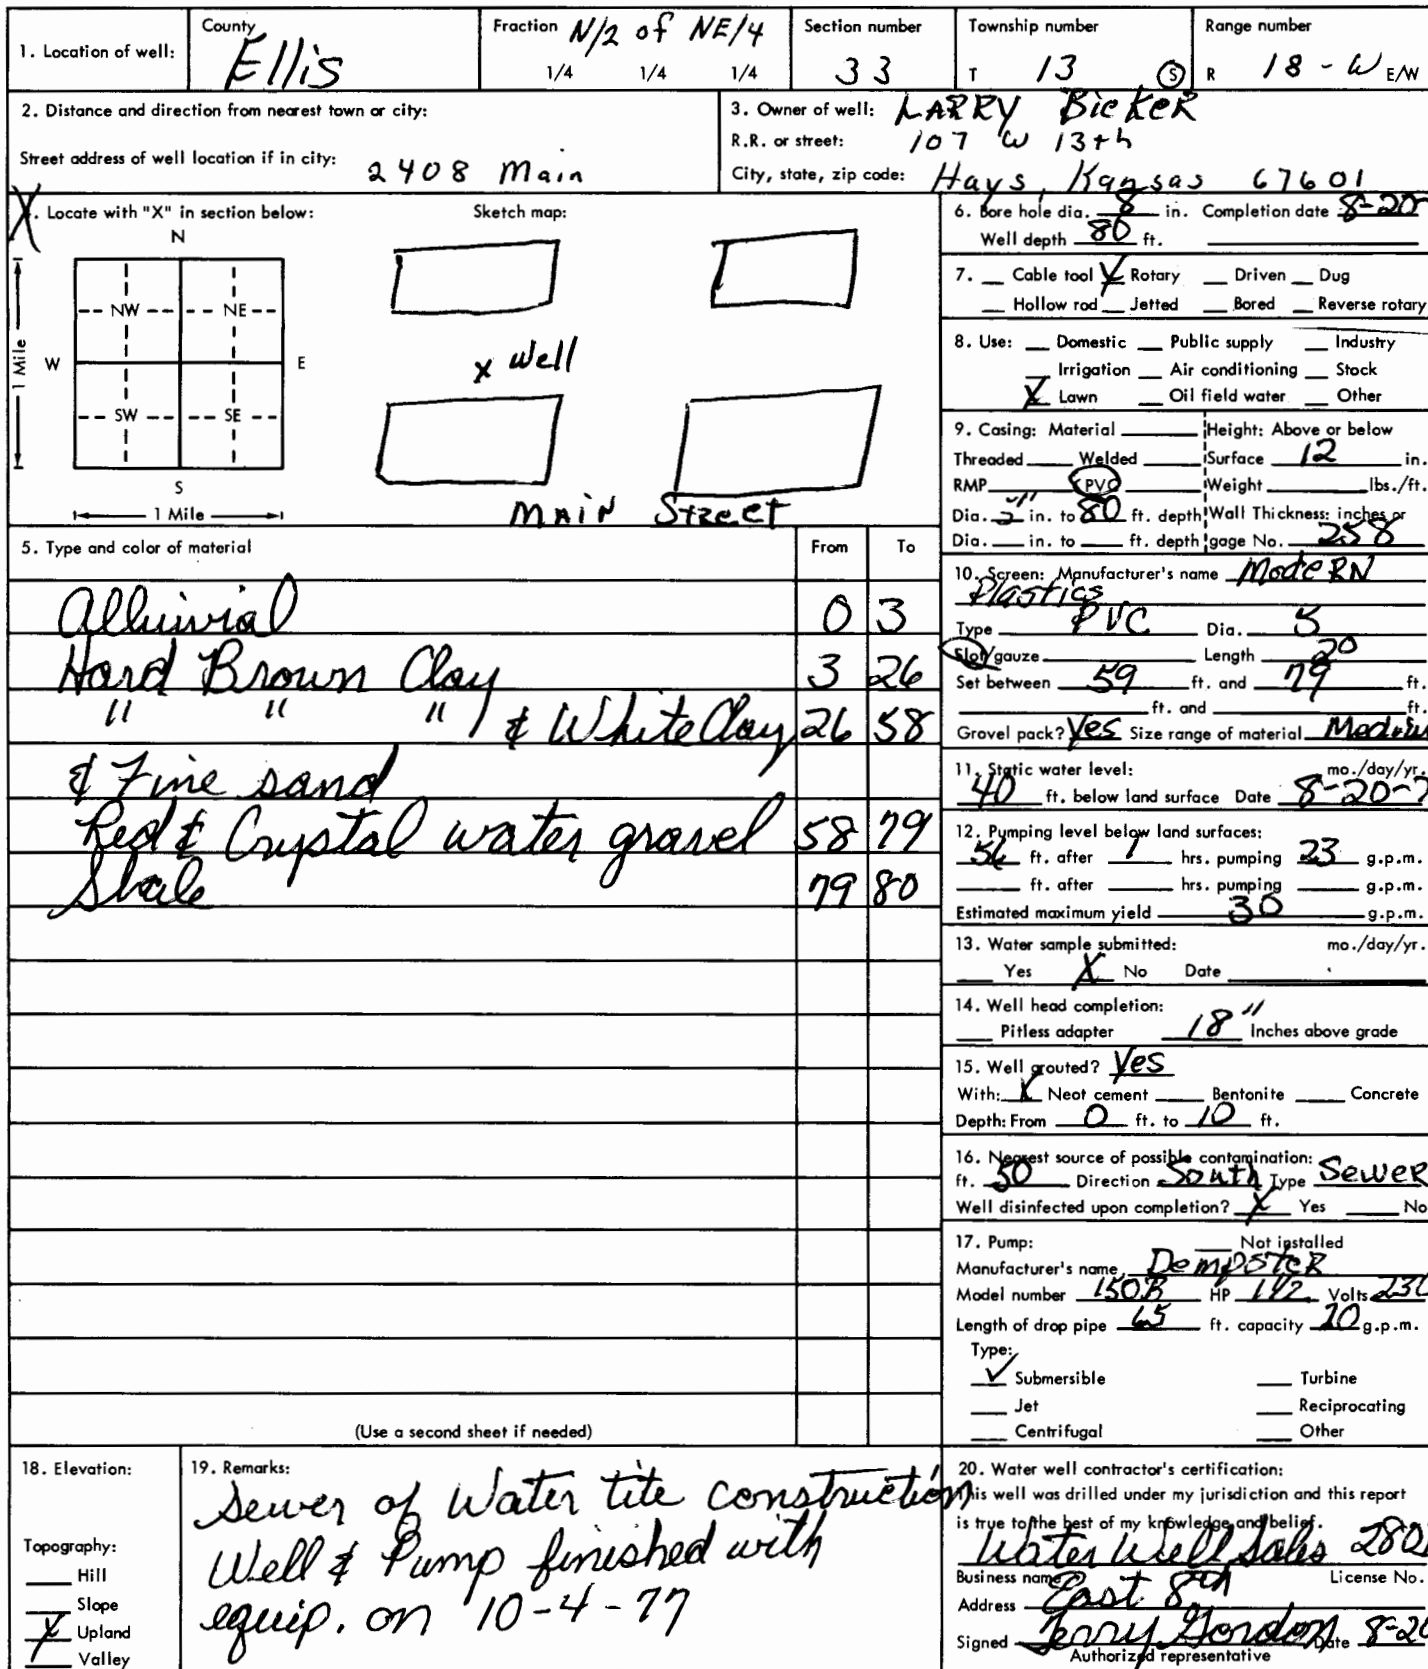 1. Location of well:
County
Ellis
Fraction N/2 of NE/4
1/4 1/4 1/4
Section number
33
Township number
T 13 S
Range number
R 18 - W E/W
2. Distance and direction from nearest town or city:
Street address of well location if in city: 2408 Main
3. Owner of well: LARRY Bieker
R.R. or street: 107 W 13th
City, state, zip code: Hays, Kansas 67601
X. Locate with "X" in section below:
Sketch map:
N
NW NE
W E
SW SE
S
1 Mile
1 Mile
x Well
MAIN Street
5. Type and color of material From To
Alluvial 0 3
Hard Brown Clay 3 26
" " " & White Clay 26 58
& Fine sand
Red & Crystal water gravel 58 79
Shale 79 80
(Use a second sheet if needed)
6. Bore hole dia. 8 in. Completion date 8-20-
Well depth 80 ft.
7. Cable tool X Rotary Driven Dug
Hollow rod Jetted Bored Reverse rotary
8. Use: Domestic Public supply Industry
Irrigation Air conditioning Stock
X Lawn Oil field water Other
9. Casing: Material Height: Above or below
Threaded Welded Surface 12 in.
RMP PVC Weight lbs./ft.
Dia. in. to 80 ft. depth Wall Thickness: inches or
Dia. in. to ft. depth gage No. 258
10. Screen: Manufacturer's name Modern
Plastics
Type PVC Dia. 5
Slot/gauze Length 20
Set between 59 ft. and 79 ft.
ft. and ft.
Gravel pack? Yes Size range of material Mediu
11. Static water level: mo./day/yr.
40 ft. below land surface Date 8-20-7
12. Pumping level below land surfaces:
56 ft. after 1 hrs. pumping 23 g.p.m.
ft. after hrs. pumping g.p.m.
Estimated maximum yield 30 g.p.m.
13. Water sample submitted: mo./day/yr.
Yes X No Date
14. Well head completion:
Pitless adapter 18" Inches above grade
15. Well grouted? Yes
With: X Neat cement Bentonite Concrete
Depth: From 0 ft. to 10 ft.
16. Nearest source of possible contamination:
ft. 50 Direction South Type Sewer
Well disinfected upon completion? X Yes No
17. Pump: Not installed
Manufacturer's name Dempster
Model number 150B HP 1 1/2 Volts 230
Length of drop pipe 65 ft. capacity 20 g.p.m.
Type:
✓ Submersible Turbine
Jet Reciprocating
Centrifugal Other
18. Elevation:
Topography:
Hill
Slope
X Upland
Valley
19. Remarks:
Sewer of Water tite construction
Well & Pump finished with
equip. on 10-4-77
20. Water well contractor's certification:
This well was drilled under my jurisdiction and this report
is true to the best of my knowledge and belief.
Water Well Sales 280
Business name License No.
Address East 8th
Signed Terry Gordon Date 8-20
Authorized representative